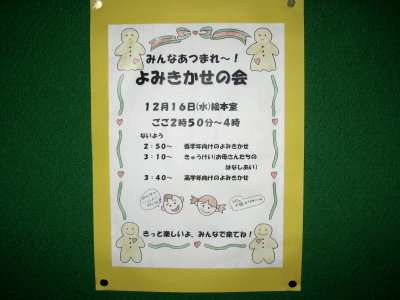 みんなあつまれ〜！
よみきかせの会
12月16日(水)絵本室
ごご2時50分〜4時
ないよう
2：50〜 低学年向けのよみきかせ
3：10〜 きゅうけい(お母さんたちの
はなしあい)
3：40〜 高学年向けのよみきかせ
きっと楽しいよ、みんなで来てね！